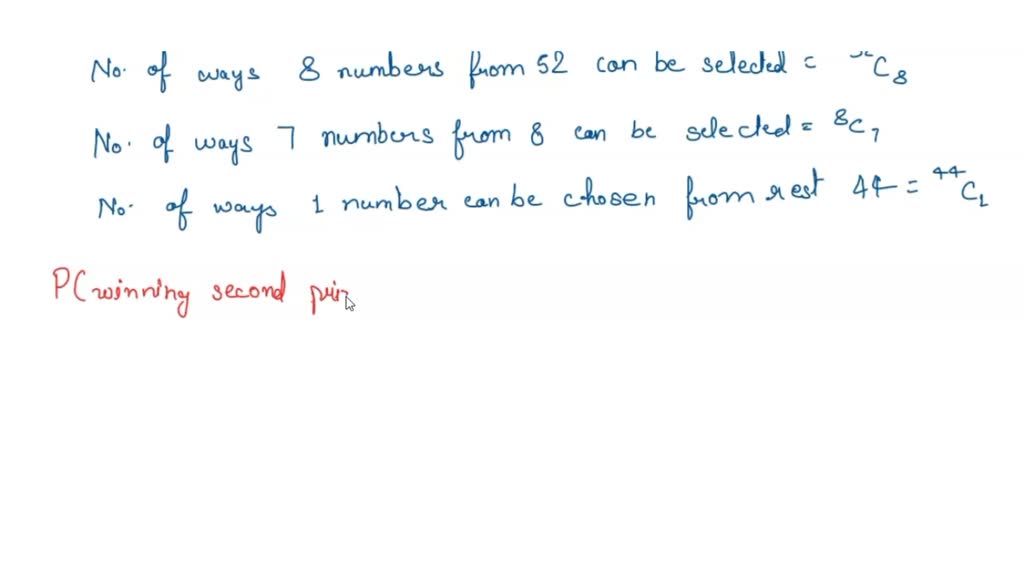 No. of ways 8 numbers from 52 can be selected = ⁵²C₈
No. of ways 7 numbers from 8 can be selected = ⁸C₇
No. of ways 1 number can be chosen from rest 44 = ⁴⁴C₁
P(winning second